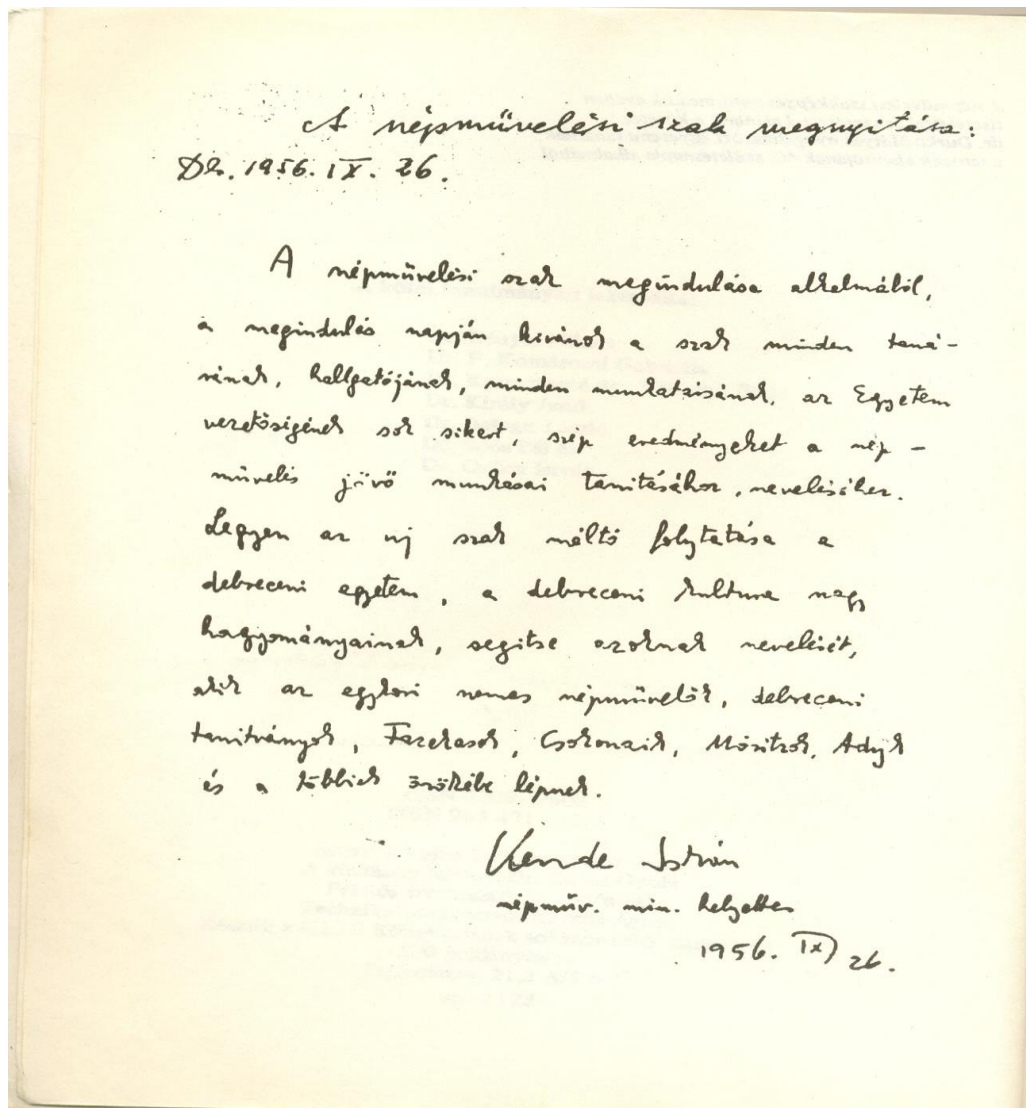 A népművelési szak megnyitása:
Db. 1956. IX. 26.
A népművelési szak megindulása alkalmából,
a megindulás napján kívánok a szak minden taná-
rának, hallgatójának, minden munkatársának, az Egyetem
vezetőségének sok sikert, szép eredményeket a nép-
művelés jövő munkásai tanításához, neveléséhez.
Legyen az uj szak méltó folytatása a
debreceni egyetem, a debreceni kultura nagy
hagyományainak, segitse azoknak nevelését,
akik az egykori nemes népművelők, debreceni
tanitványok, Fazekasok, Csokonaik, Móriczok, Adyk
és a többiek örökébe lépnek.
Kende István
népműv. min. helyettes
1956. IX) 26.